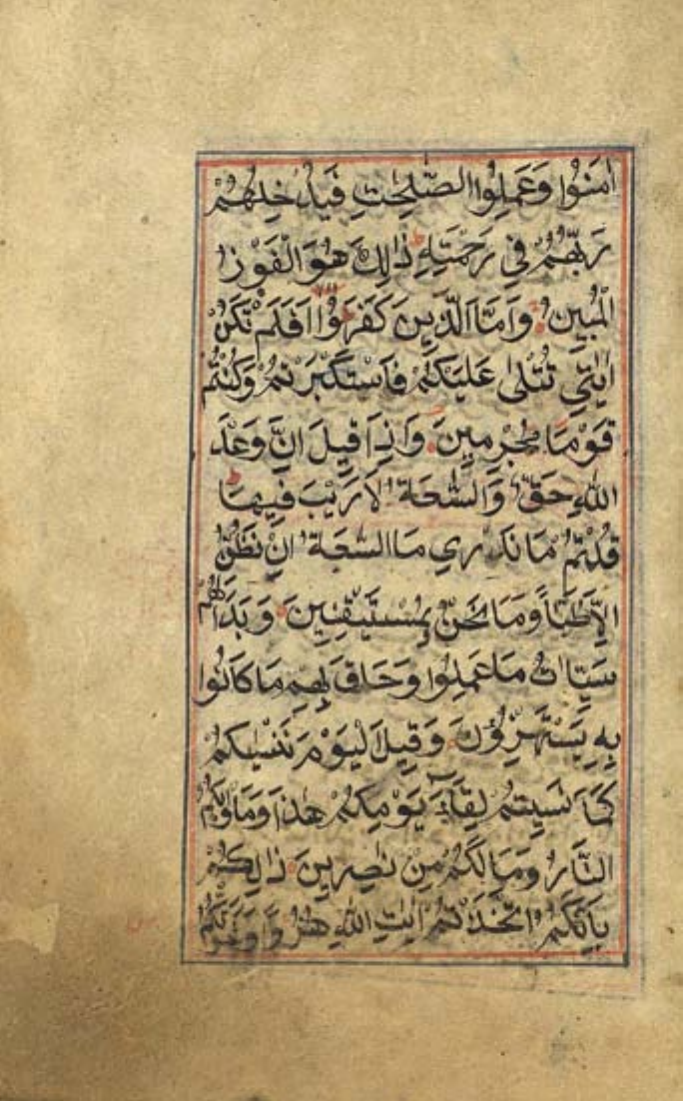 اٰمَنُوا وَعَمِلُوا الصّٰلِحٰتِ فَيُدْخِلُهُمْ
رَبُّهُمْ فِي رَحْمَتِهِ ذٰلِكَ هُوَ الْفَوْزُ
الْمُبِينُ وَاَمَّا الَّذِينَ كَفَرُوْا اَفَلَمْ تَكُنْ
اٰيٰتِي تُتْلٰى عَلَيْكُمْ فَاسْتَكْبَرْتُمْ وَكُنْتُمْ
قَوْمًا مُجْرِمِينَ وَاِذَا قِيلَ اِنَّ وَعْدَ
اللّٰهِ حَقٌّ وَالسَّعَةُ لَارَيْبَ فِيهَا
قُلْتُمْ مَا نَدْرِي مَا السَّعَةُ اِنْ نَظُنُّ
اِلَّا ظَنًّا وَمَا نَحْنُ بِمُسْتَيْقِنِينَ وَبَدَا لَهُمْ
سَيِّاٰتُ مَا عَمِلُوا وَحَاقَ بِهِمْ مَا كَانُوا
بِهِ يَسْتَهْزِؤُنَ وَقِيلَ الْيَوْمَ نَنْسٰيكُمْ
كَمَا نَسِيتُمْ لِقَآءَ يَوْمِكُمْ هٰذَا وَمَاْوٰيكُمُ
النَّارُ وَمَا لَكُمْ مِنْ نٰصِرِينَ ذٰلِكُمْ
بِاَنَّكُمُ اتَّخَذْتُمْ اٰيٰتِ اللّٰهِ هُزُوًا وَغَرَّتْكُمُ